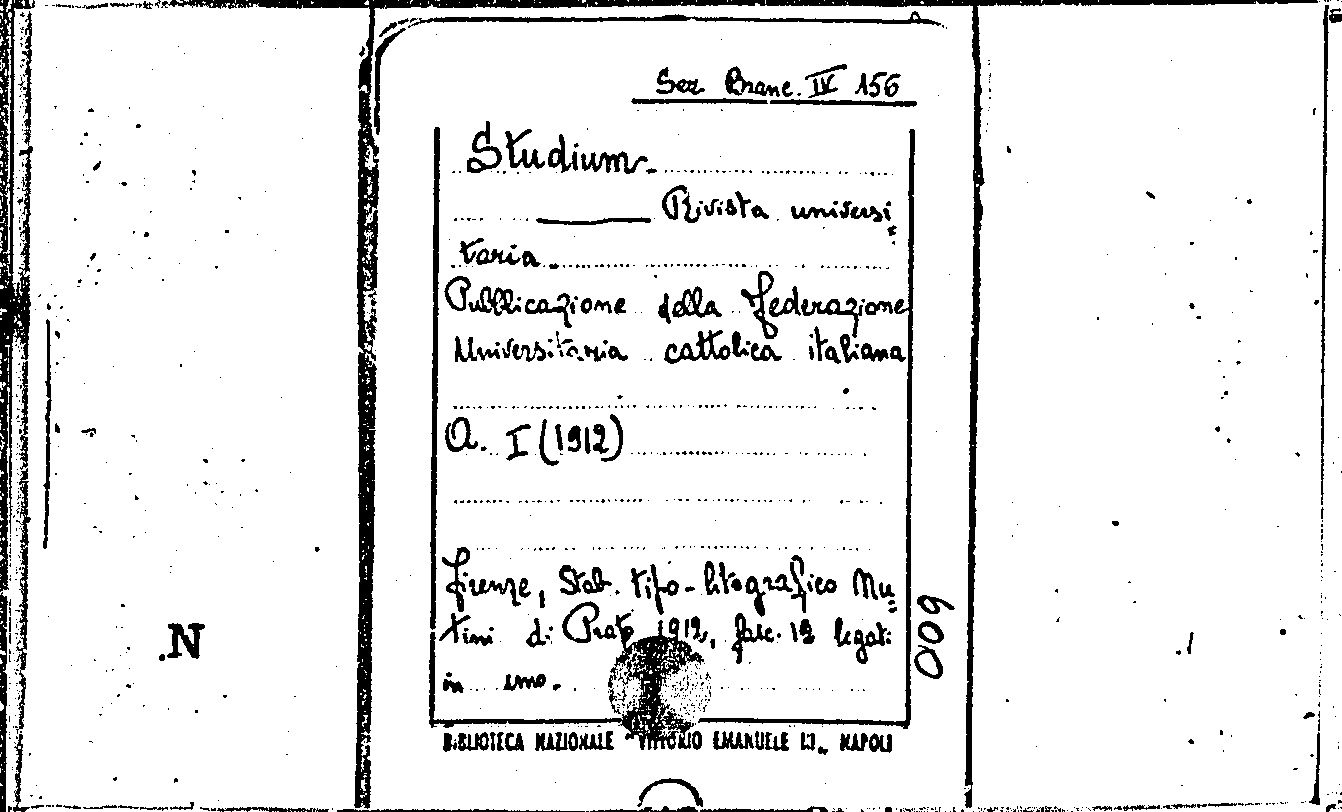 Sez Branc. IV 156
Studium.
Rivista universi=
taria.
Pubblicazione della Federazione
Universitaria cattolica italiana
A. I (1912)
Firenze, Stab. tipo-litografico Mu=
tini di Prato 1912, fasc. 12 legati
in uno.
BIBLIOTECA NAZIONALE "VITTORIO EMANUELE III„ NAPOLI
600
N.